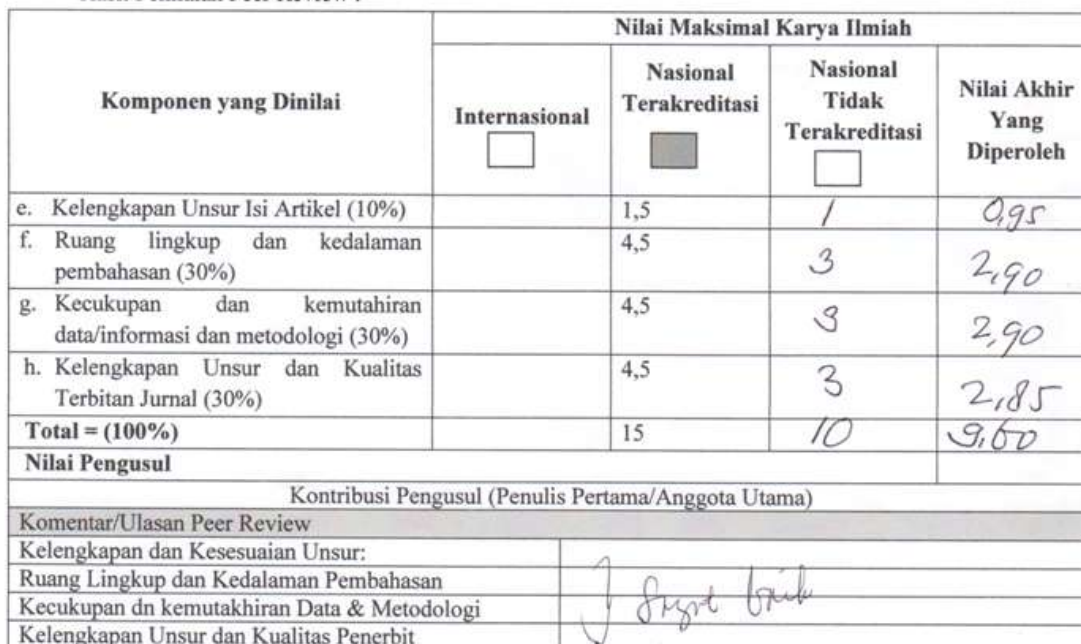 Nilai Maksimal Karya Ilmiah
Komponen yang Dinilai
Internasional
Nasional
Terakreditasi
Nasional
Tidak
Terakreditasi
Nilai Akhir
Yang
Diperoleh
e. Kelengkapan Unsur Isi Artikel (10%) 1,5 1 0,95
f. Ruang lingkup dan kedalaman
pembahasan (30%) 4,5 3 2,90
g. Kecukupan dan kemutahiran
data/informasi dan metodologi (30%) 4,5 3 2,90
h. Kelengkapan Unsur dan Kualitas
Terbitan Jurnal (30%) 4,5 3 2,85
Total = (100%) 15 10 9,60
Nilai Pengusul
Kontribusi Pengusul (Penulis Pertama/Anggota Utama)
Komentar/Ulasan Peer Review
Kelengkapan dan Kesesuaian Unsur:
Ruang Lingkup dan Kedalaman Pembahasan
Kecukupan dn kemutakhiran Data & Metodologi
Kelengkapan Unsur dan Kualitas Penerbit